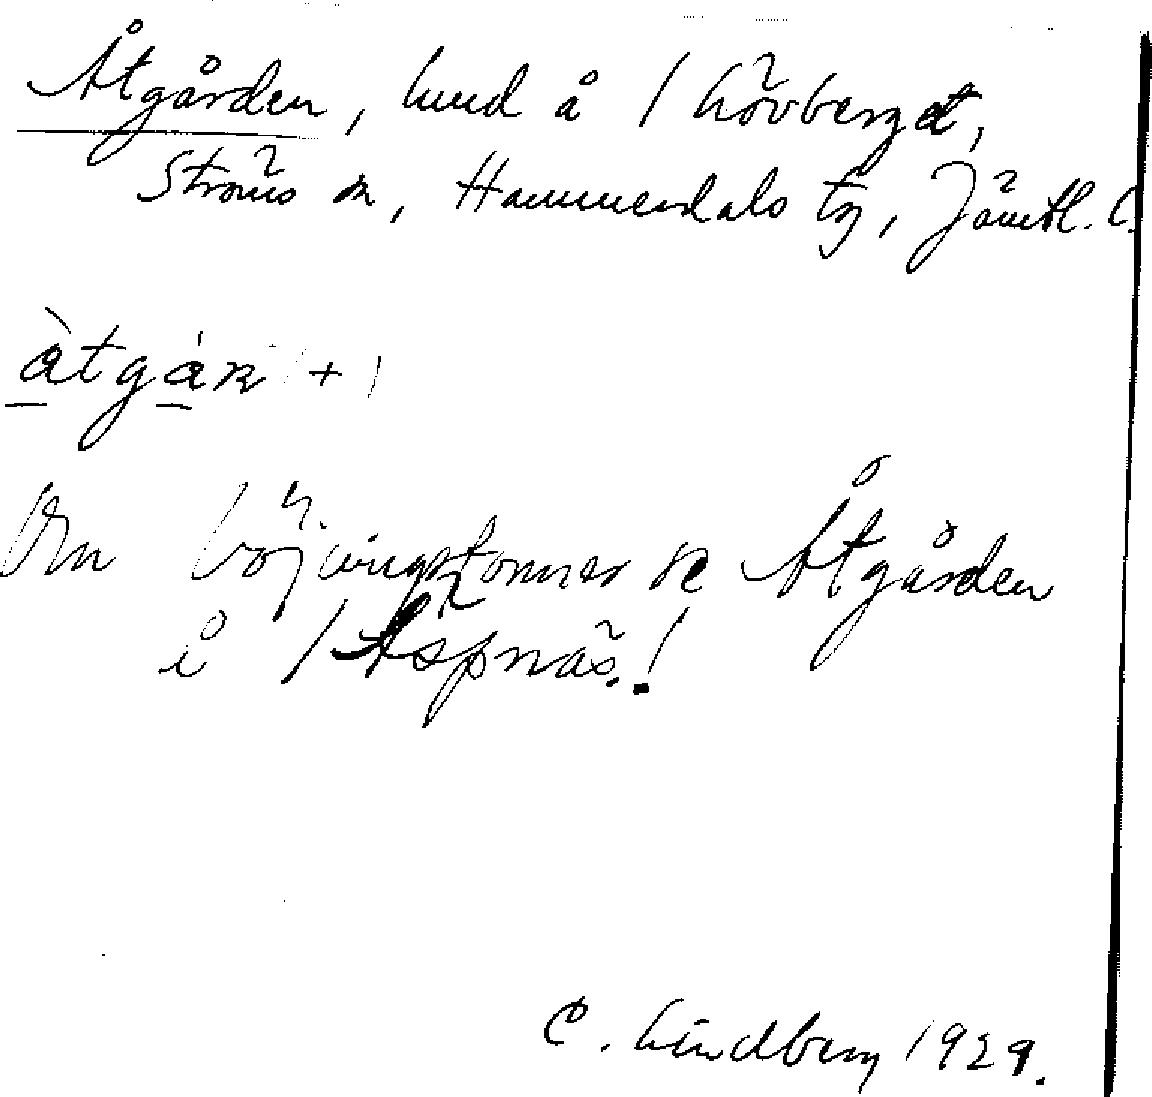 Åtgården, hmd å 1 Lövberget,
Ströms sn, Hammerdals tg, Jämtl. l.
àtgán + 1
Om böjningsformer se Åtgården
i 1 Äspnäs!
C. Lindberg 1929.